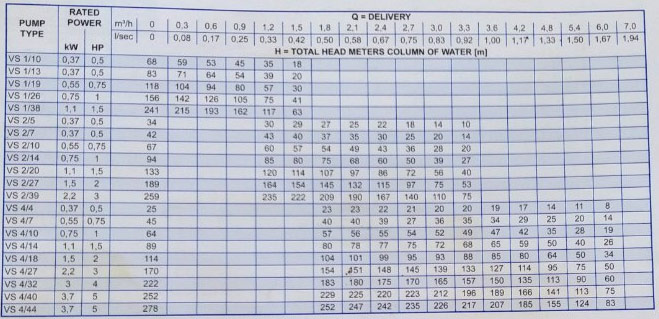 Q = DELIVERY
PUMP TYPE RATED POWER m³/h 0 0.3 0.6 0.9 1.2 1.5 1,8 2,1 2,4 2,7 3.0 3.3 3.6 4.2 4.8 5.4 6.0 7,0
l/sec 0 0,08 0,17 0,25 0,33 0,42 0,50 0,58 0,67 0,75 0,83 0,92 1,00 1,17 1,33 1,50 1,67 1,94
kW HP H = TOTAL HEAD METERS COLUMN OF WATER [m]
VS 1/10 0,37 0,5 68 59 53 45 35 18
VS 1/13 0,37 0,5 83 71 64 54 39 20
VS 1/19 0,55 0,75 118 104 94 80 57 30
VS 1/26 0,75 1 156 142 126 105 75 41
VS 1/38 1,1 1,5 241 215 193 162 117 63
VS 2/5 0.37 0.5 34 30 29 27 25 22 18 14 10
VS 2/7 0.37 0.5 42 43 40 37 35 30 25 20 14
VS 2/10 0,55 0,75 67 60 57 54 49 43 36 28 20
VS 2/14 0,75 1 94 85 80 75 68 60 50 39 27
VS 2/20 1,1 1,5 133 120 114 107 97 86 72 56 40
VS 2/27 1,5 2 189 164 154 145 132 115 97 75 53
VS 2/39 2,2 3 259 235 222 209 190 167 140 110 75
VS 4/4 0,37 0,5 25 23 23 22 21 20 20 19 17 14 11 8
VS 4/7 0,55 0,75 45 40 40 39 27 36 35 34 29 25 20 14
VS 4/10 0,75 1 64 57 56 55 54 52 49 47 42 35 28 19
VS 4/14 1,1 1,5 89 80 78 77 75 72 68 65 59 50 40 26
VS 4/18 1,5 2 114 104 101 99 95 93 88 85 80 64 50 34
VS 4/27 2,2 3 170 154 151 148 145 139 133 127 114 95 75 50
VS 4/32 3 4 222 183 180 175 170 165 157 150 135 113 90 60
VS 4/40 3,7 5 252 229 225 220 223 212 196 189 166 141 113 75
VS 4/44 3,7 5 278 252 247 242 235 226 217 207 185 155 124 83